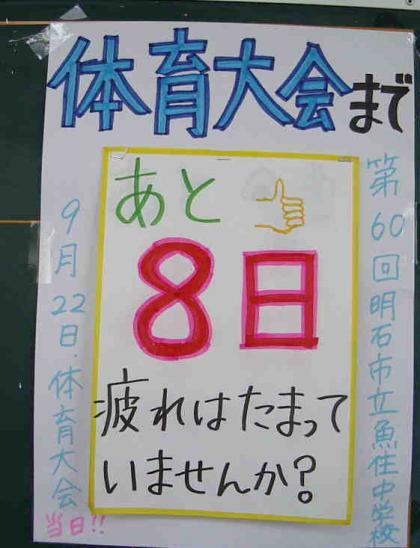 体育大会まで
あと
8日
疲れはたまって
いませんか?
第60回明石市立魚住中学校
9月22日・体育大会
当日!!